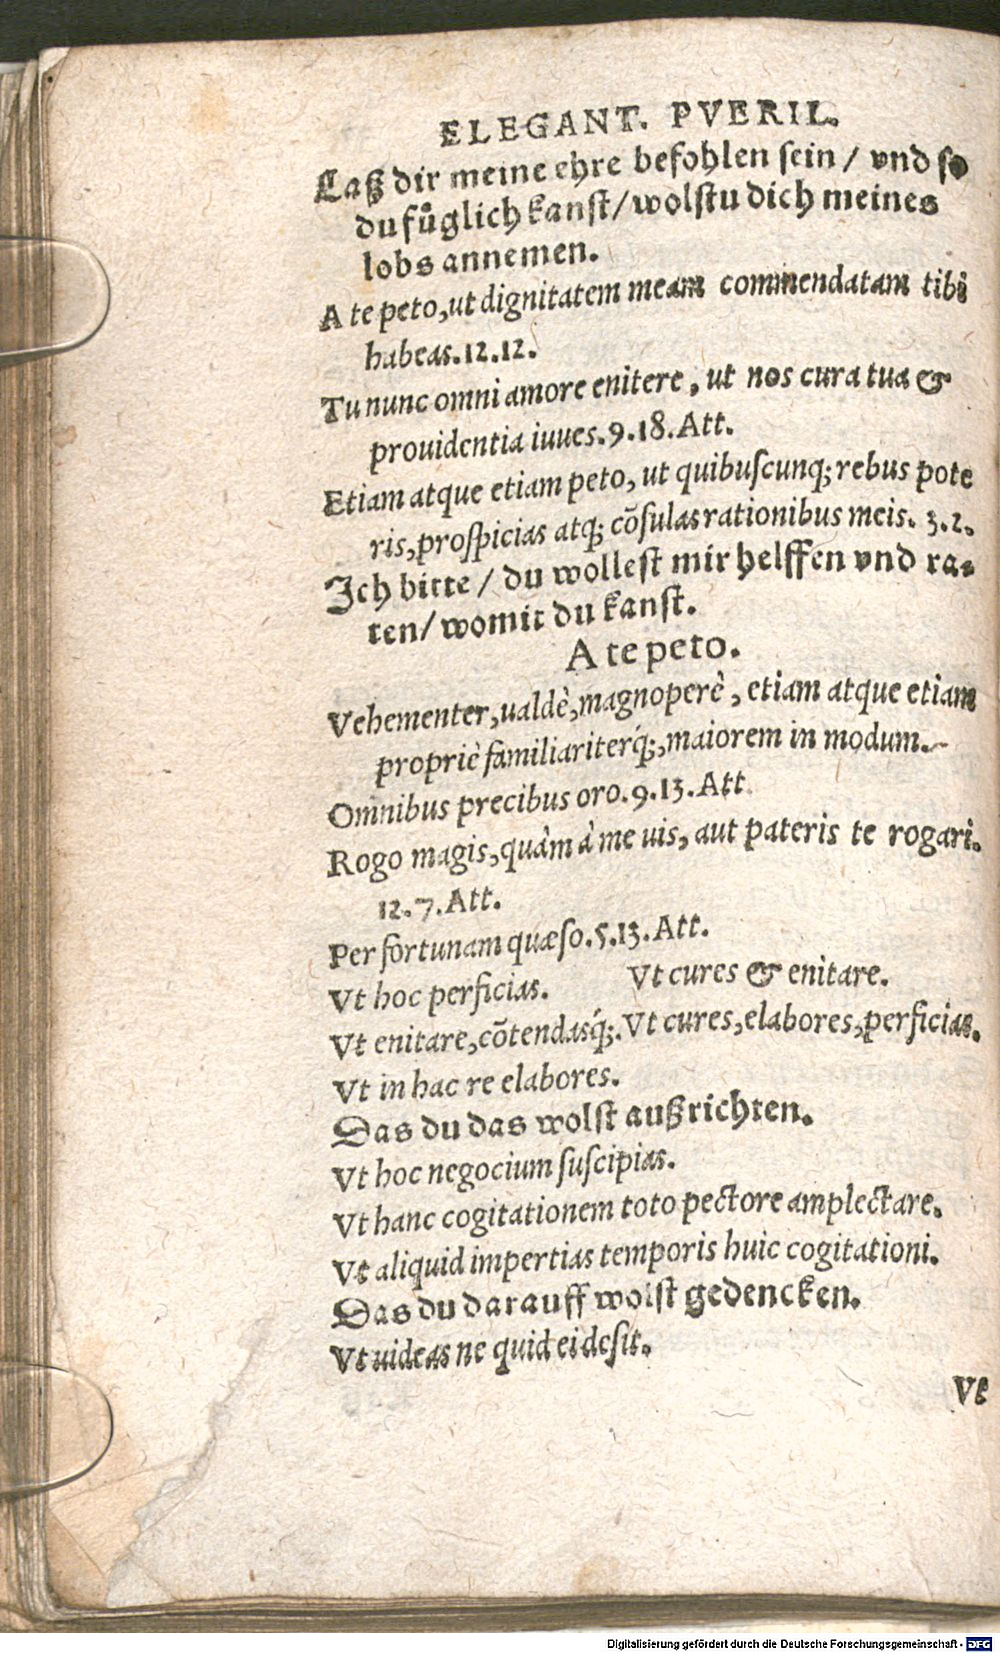 ELEGANT. PVERIL.
Laß dir meine ehre befohlen sein / vnd so
du fůglich kanst / wolstu dich meines
lobs annemen.
A te peto, ut dignitatem meam commendatam tibi
habeas. 12. 12.
Tu nunc omni amore enitere, ut nos cura tua &
prouidentia iuues. 9. 18. Att.
Etiam atque etiam peto, ut quibuscunq; rebus pote
ris, prospicias atq; cōsulas rationibus meis. 3. 2.
Ich bitte / du wollest mir helffen vnd ra-
ten / womit du kanst.
A te peto.
Vehementer, ualdè, magnoperè, etiam atque etiam
propriè familiariterq́;, maiorem in modum.
Omnibus precibus oro. 9. 13. Att.
Rogo magis, quàm à me uis, aut pateris te rogari.
12. 7. Att.
Per fortunam quæso. 5. 13. Att.
Vt hoc perficias. Vt cures & enitare.
Vt enitare, cōtendasq́;. Vt cures, elabores, perficias.
Vt in hac re elabores.
Das du das wolst außrichten.
Vt hoc negocium suscipias.
Vt hanc cogitationem toto pectore amplectare.
Vt aliquid impertias temporis huic cogitationi.
Das du darauff wolst gedencken.
Vt uideas ne quid ei desit.
Vt
Digitalisierung gefördert durch die Deutsche Forschungsgemeinschaft - DFG